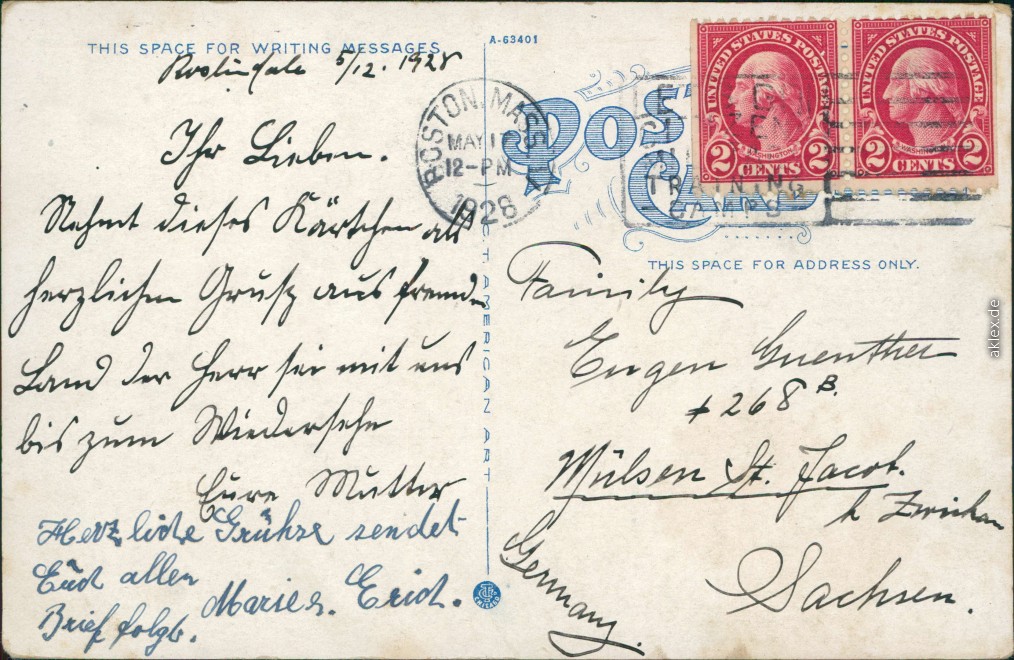 THIS SPACE FOR WRITING MESSAGES
A-63401
Roslindale 5/12. 1928
Ihr Lieben.
Nehmt dieses Kärtchen als
herzlichen Gruß aus fremden
Land der Herr sei mit uns
bis zum Wiedersehn
Eure Mutter
Herzliche Grühse sendet
Euch allen
Marie u. Erich.
Brief folgt.
C.T. AMERICAN ART
CHICAGO
BOSTON, MASS
MAY 1
12-PM
1928
POST CARD
TRAINING
CAMPS
UNITED STATES POSTAGE
WASHINGTON
2 CENTS 2
UNITED STATES POSTAGE
WASHINGTON
2 CENTS 2
THIS SPACE FOR ADDRESS ONLY.
Family
Eugen Guenther
# 268 B.
Mülsen St. Jacob.
b. Zwickau
Sachsen.
Germany.
aklex.de